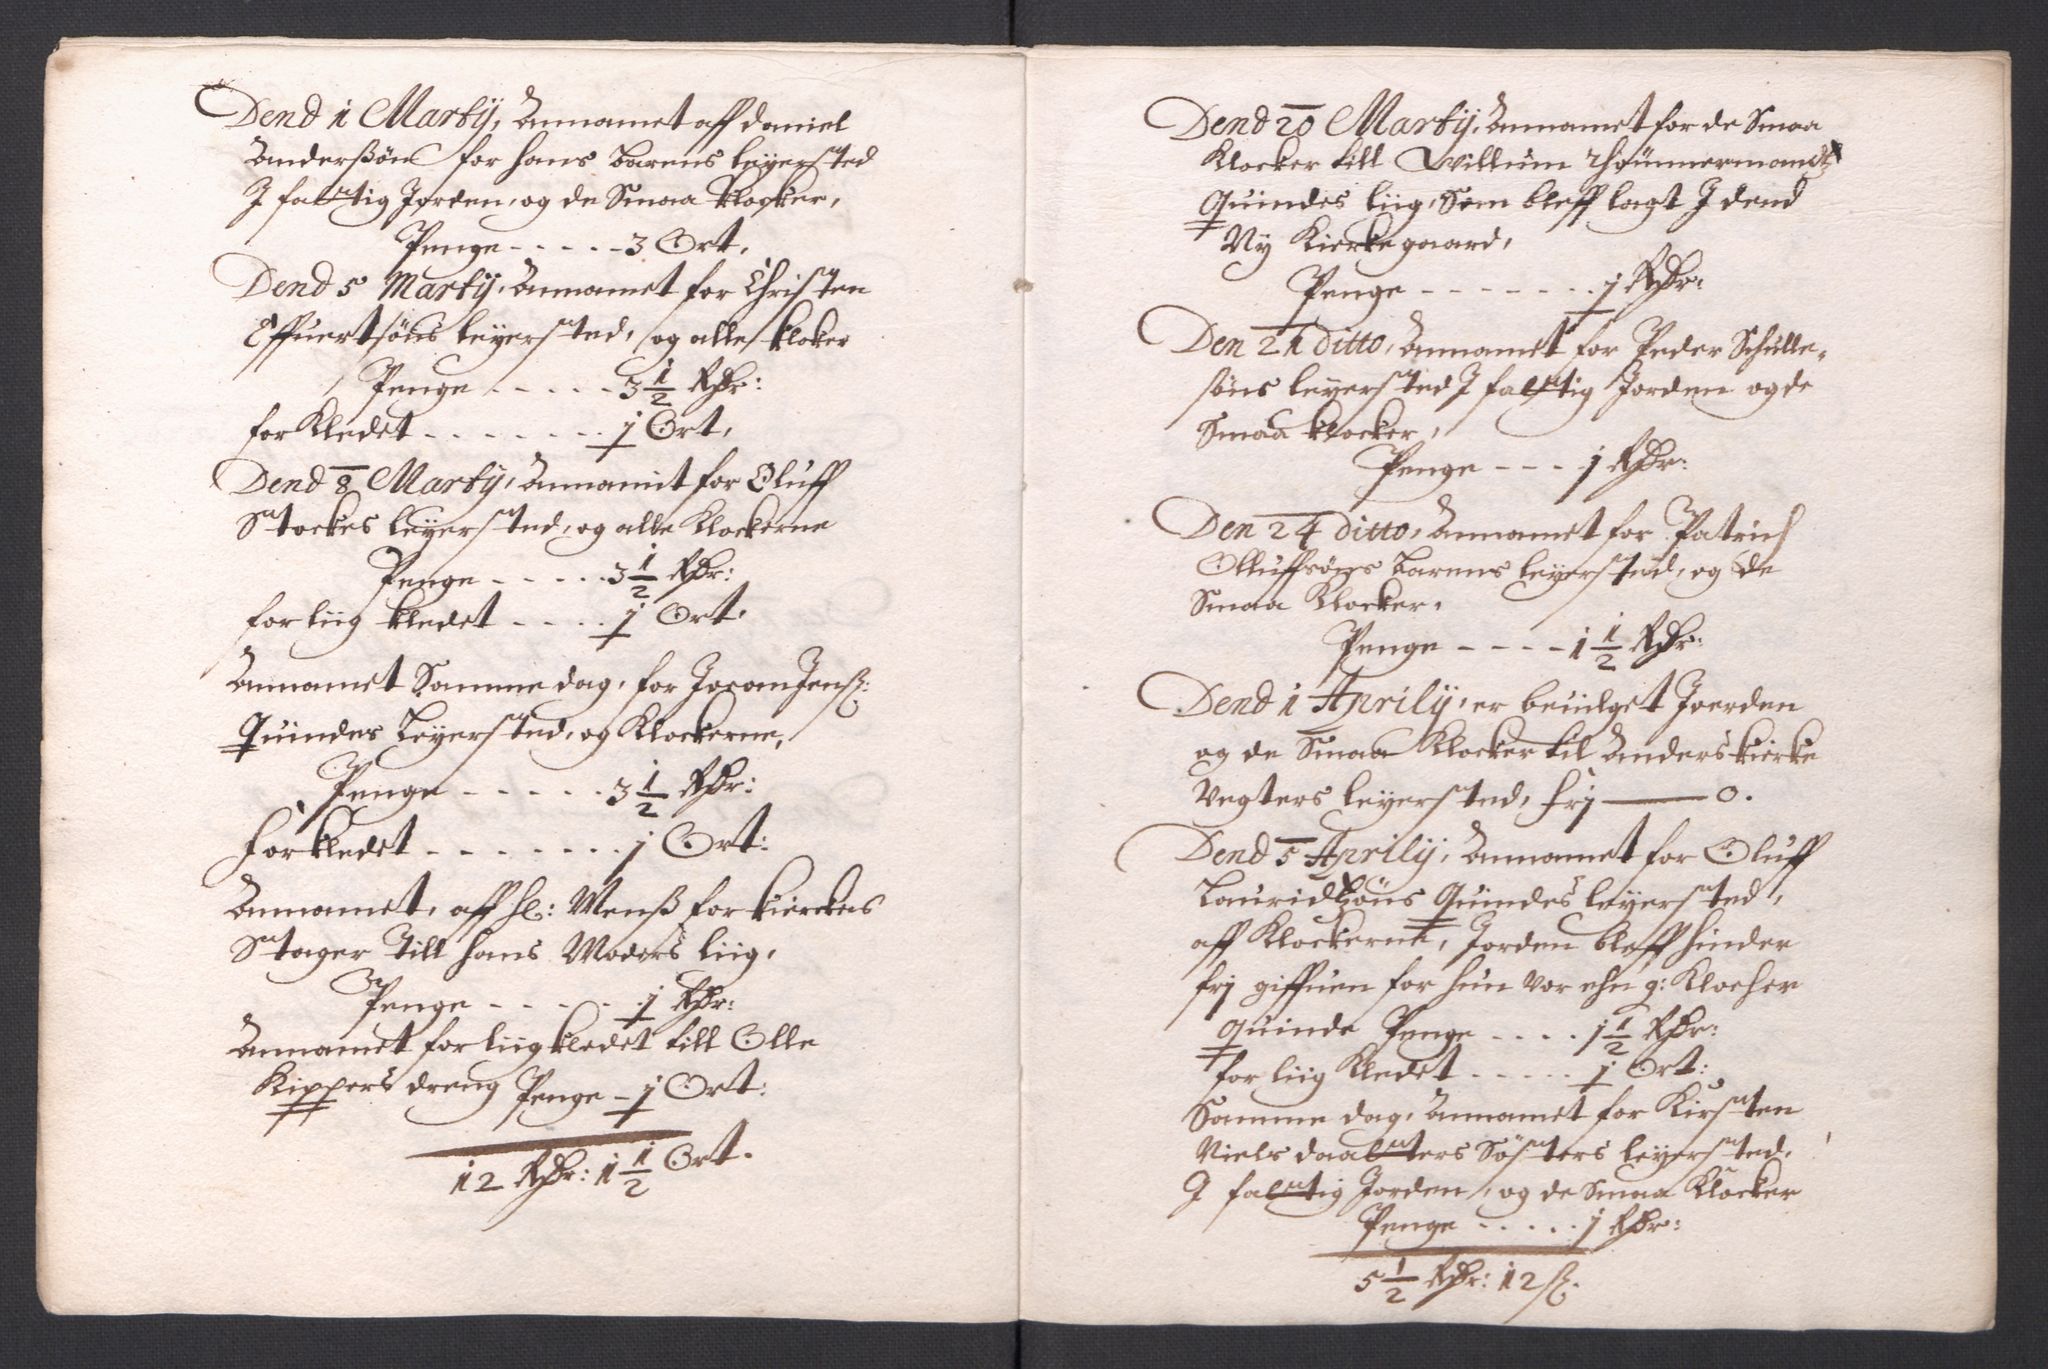 Dend 1 Marty, Annamet aff daniel
Anderßøn for hans barens leyersted
J fattig Jorden, og de Smaa klocker,
Penge - - - - - 3 Ort,
Dend 5 Marty, Annamet for Christen
Effuertsøns leyersted, og alle kloker
Penge - - - - - 3 1/2 Rdr:
for Kledet - - - - - - - 1 Ort,
Dend 8 Marty, Annamit for Oluff
Stockes leyersted, og alle Klockerne
Penge - - - - - 3 1/2 Rdr:
for liig kledet - - - - 1 Ort,
Annamet Samme dag, for Joran Jenß:
Quindes Leyersted, og Klockerne,
Penge - - - - - 3 1/2 Rdr:
for kledet - - - - - - - 1 Ort:
Annamet, aff hl: Menß for kierckens
Stager till hans Moders liig,
Penge - - - - - 1 Rdr:
Annamet for liigkledet till Olle
Kippers dreng Penge - 1 Ort:
12 Rdr: 1 1/2 Ort.
Dend 20 Marty, Annamet for de Smaa
Klocker till Willum
Quindes liig, Som bleff lagt J dend
Ny Kierkegaard,
Penge - - - - - - - 1 Rdr:
Den 21 ditto, Annamet for Peder Schulle-
søns leyersted J fattig Jorden og de
Smaa klocker,
Penge - - - 1 Rdr:
Den 24 ditto, Annamet for Patrich
Olluffsøns barens leyersted, og de
Smaa Klocker,
Penge - - - - 1 1/2 Rdr:
Dend 1 Aprily, er beuilget Joerden
og de Smaa Klocker til Anders kierke
Vegters leyersted, frj — 0.
Dend 5 Aprily, Annamet for Oluff
Lauridtzøns Quindes leyersted,
aff Klockerne, Jorden bleff hinder
frj giffuen for hun vor ehn g: Klocher
quinde Penge - - - - 1 1/2 Rdr:
for liig Kledet - - - - - 1 Ort:
Samme dag, Annamet for Kirsten
Niels daatters Søsters leyersted,
J fattig Jorden, og de Smaa Klocker
Penge - - - - - 1 Rdr:
5 1/2 Rdr: 12 ß.